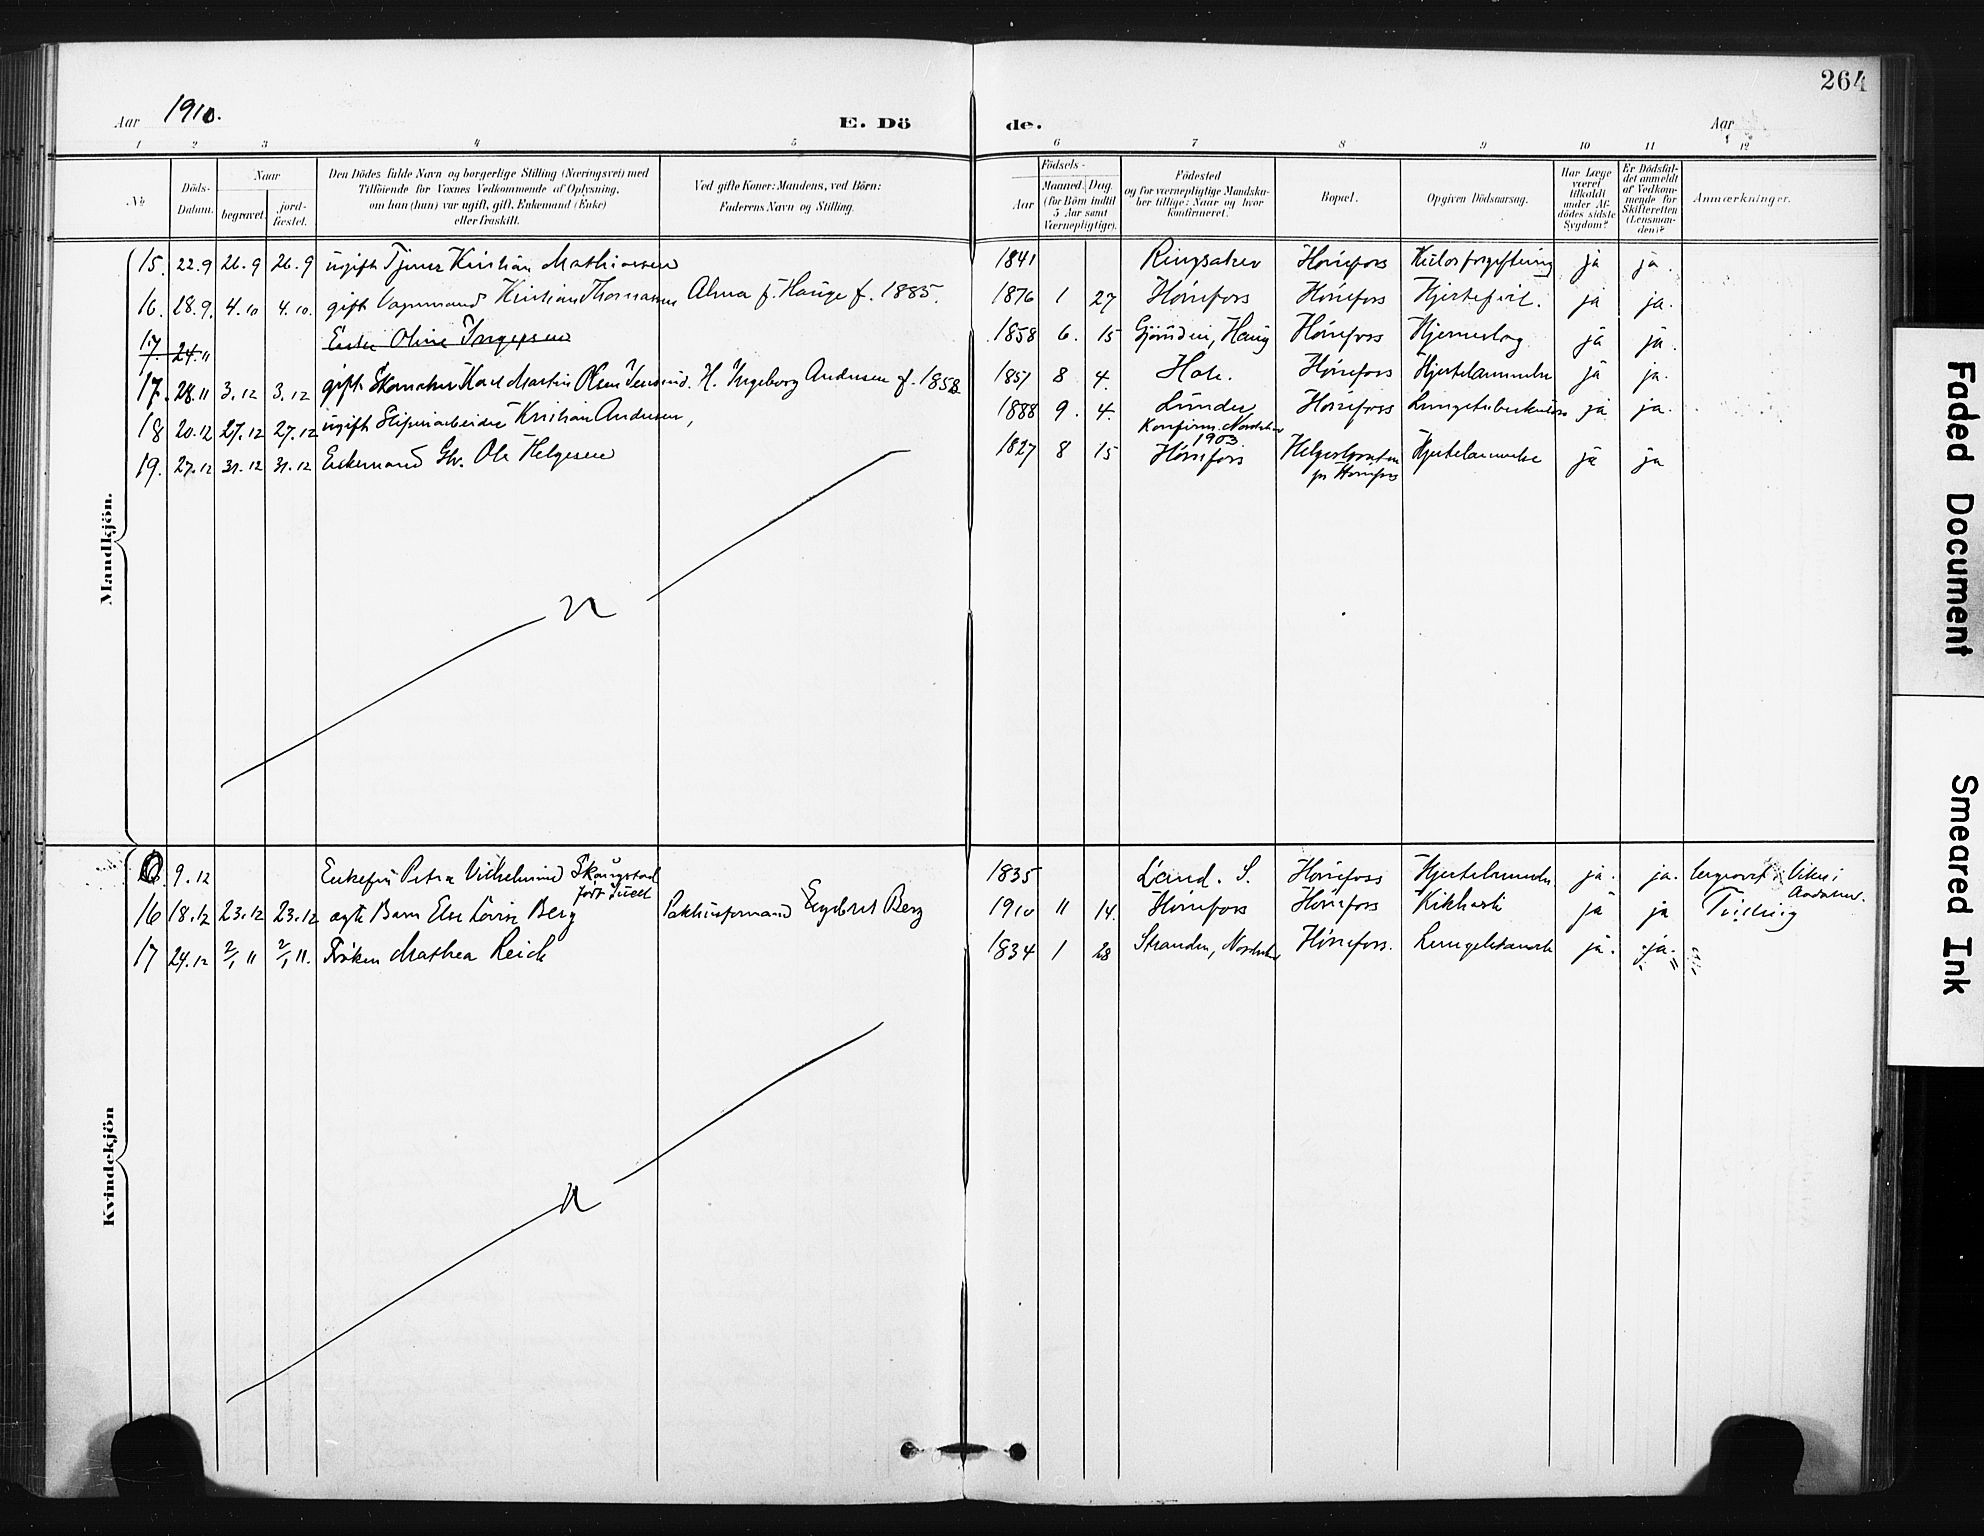 264
Aar 1910.
E. Dö de.
Aar
1 2 3 4 5 6 7 8 9 10 11 12
No
Döds-Datum.
Naar
begravet.
jordfæstet.
Den Dødes fulde Navn og borgerlige Stilling (Næringsvei) med
Tilföiende for Voxnes Vedkommende af Oplysning,
om han (hun) var ugift, gift, Enkemand (Enke)
eller fraskilt.
Ved gifte Koner: Mandens, ved Börn:
Faderens Navn og Stilling.
Födsels-
Aar
Maaned. Dag
(for Börn indtil
5 Aar samt
Værnepligtige).
Födested
og for værnepligtige Mandsku-
ber tillige: Naar og hvor
konfirmeret.
Bopæl.
Opgiven Dödsaarsag.
Har Læge
været
tilkaldt
under Af-
dödes sidste
Sygdom?
Er Dödsfal-
det anmeldt
af Vedkom-
mende for
Skifteretten
(Lensman-
den)?
Anmærkninger.
Mandkjön.
15. 22.9 26.9 26.9 ugift Kristian Mathiesen 1841 Ringsaker Hønefos ja ja.
16. 28.9. 4.10 4.10. gift Vognmand Kristian Thomassen Alma f. Hauge f. 1885. 1876 1 27 Hønefos Hønefos ja ja.
17. 24.11 Enke Oline 1858 6. 15 Haug Hønefos Hjerneslag ja ja.
17. 28.11 3.12 3.12 gift Skomaker Karl Martin Olsen H. Ingeborg Andersen f. 1858 1857 8 4. Hole. Hønefos Hjertelammelse ja ja.
18 20.12 27.12 27.12 ugift Sliperiarbeider Kristian Andersen, 1888 9. 4. Lunder Hønefos Lungetuberkulose ja ja.
Konfirm. Norderhov
1903.
19. 27.12 31.12 31.12 Enkemand Gbr. Ole Helgesen 1827 8 15 Hønefos Helgesbraaten Hjertelammelse ja ja
pr Hønefos
Kvindekjön
9.12 Enkefru Petra Vilhelmine Skougstad 1835 Land. S. Hønefoss Hjertelammelse ja. ja. begravet i Viker i
født Juell Aadalen.
16 18.12 23.12 23.12 ægte Barn Else Lovise Berg Pakhusformand Engebret Berg 1910 11 14. Hønefos Hønefos Kikhoste ja ja Tvilling
17 24.12 2/1 11 2/1 11. Frøken Mathea Reich 1834 1 28 Stranden, Norderhov Hønefos. Lungebetændelse ja. ja.
Faded Document
Smeared Ink